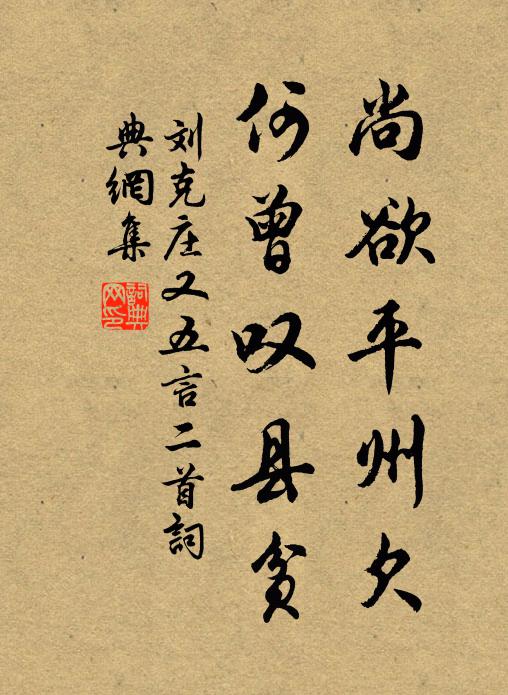 尚欲平州欠
何曾叹县贫
刘克庄又五言二首詞
典網集
詞典网印